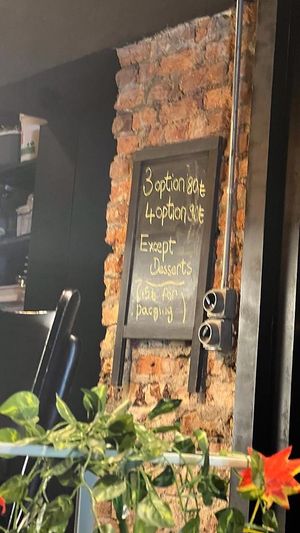 3 option 80₺
4 option 90₺
Except
Desserts
(15₺ for
pacging)